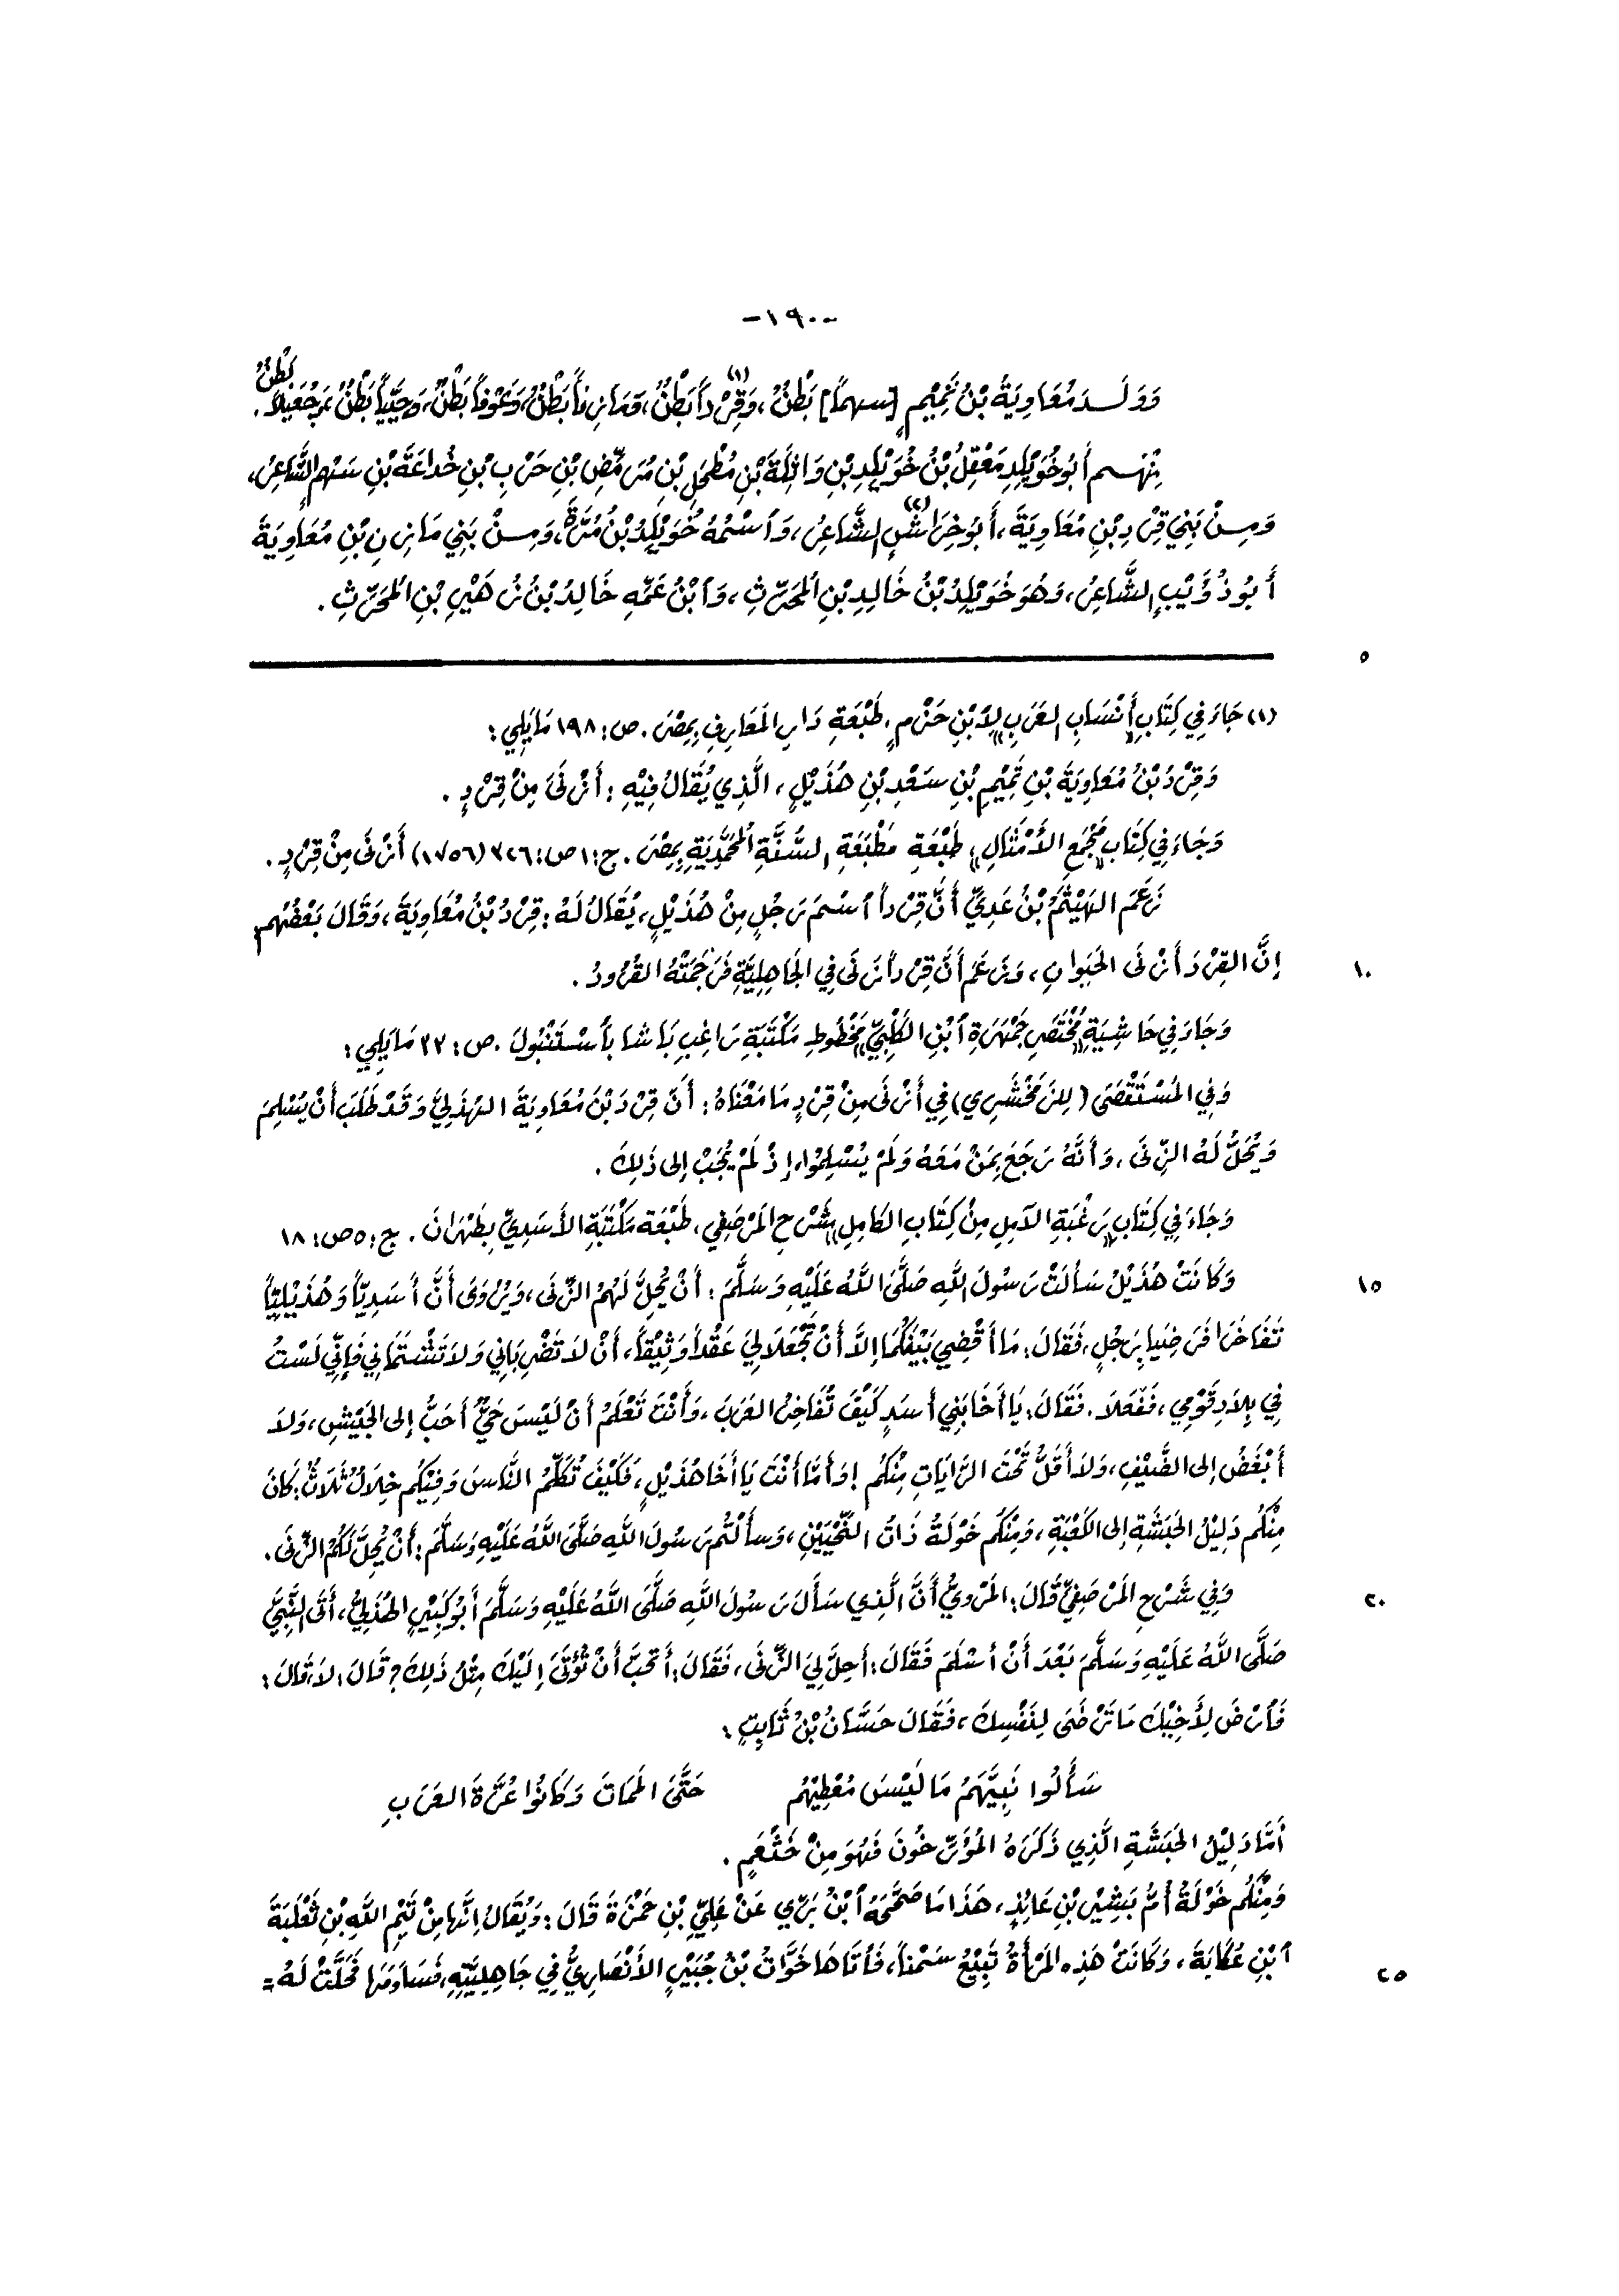 -١٩٠-
وَوَلَدَ مُعَاوِيَةُ بْنُ تَمِيْمٍ [سهماً] بَطْنٌ، وَقِرْداً(١) بَطْنٌ، وَمَازِناً بَطْنٌ، وَعَوْفاً بَطْنٌ، وَحِيَيَّاً بَطْنٌ، وَجُعَيْلاً بَطْنٌ.
مِنْهُم أَبُو خُوَيْلِدٍ مَعْقِلُ بْنُ خُوَيْلِدِ بْنِ وَاثِلَةَ بْنِ مُطْحِلِ بْنِ مُرَمِّضِ بْنِ حَرْبِ بْنِ خُدَاعَةَ بْنِ سَهْمٍ الشَّاعِرُ،
وَمِنْ بَنِي قِرْدِ بْنِ مُعَاوِيَةَ، أَبُو خِرَاشٍ(٢) الشَّاعِرُ، وَٱسْمُهُ خُوَيْلِدُ بْنُ مُرَّةَ، وَمِنْ بَنِي مَازِنِ بْنِ مُعَاوِيَةَ
أَبُو ذُؤَيْبٍ الشَّاعِرُ، وَهُوَ خُوَيْلِدُ بْنُ خَالِدِ بْنِ المُحَرِّثِ، وَٱبْنُ عَمِّهِ خَالِدُ بْنُ زُهَيْرِ بْنِ المُحَرِّثِ.
٥
(١) جَاءَ فِي كِتَابِ «أَنْسَابِ العَرَبِ» لِٱبْنِ حَزْمٍ، طَبْعَةِ دَارِ المَعَارِفِ بِمِصْرَ. ص: ١٩٨ مَا يَلِي:
وَقِرْدُ بْنُ مُعَاوِيَةَ بْنِ تَمِيْمِ بْنِ سَعْدِ بْنِ هُذَيْلٍ، الَّذِي يُقَالُ فِيْهِ: أَزْنَى مِنْ قِرْدٍ.
وَجَاءَ فِي كِتَابِ «مَجْمَعِ الأَمْثَالِ» طَبْعَةِ مَطْبَعَةِ السُّنَّةِ المُحَمَّدِيَّةِ بِمِصْرَ. ج: ١ ص: ٣٢٦ (١٧٥٦) أَزْنَى مِنْ قِرْدٍ.
زَعَمَ الهَيْثَمُ بْنُ عَدِيٍّ أَنَّ قِرْداً ٱسْمُ رَجُلٍ مِنْ هُذَيْلٍ، يُقَالُ لَهُ: قِرْدُ بْنُ مُعَاوِيَةَ، وَقَالَ بَعْضُهُم:
إِنَّ القِرْدَ أَزْنَى الحَيَوانِ، وَزَعَمَ أَنَّ قِرْداً زَنَى فِي الجَاهِلِيَّةِ فَرَجَمَتْهُ القُرُودُ.
١٠
وَجَاءَ فِي حَاشِيَةِ «مُخْتَصَرِ جَمْهَرَةِ ٱبْنِ الكَلْبِيِّ» مَخْطُوطِ مَكْتَبَةِ رَاغِبِ بَاشَا بِٱسْتَنْبُولَ. ص: ٢٢ مَا يَلِي:
وَفِي المُسْتَقْصَى (لِلزَمَخْشَرِي) فِي أَزْنَى مِنْ قِرْدٍ مَا مَعْنَاهُ: أَنَّ قِرْدَ بْنَ مُعَاوِيَةَ الهُذَلِيَّ وَقَدْ طَلَبَ أَنْ يُسْلِمَ
وَيُحَلُّ لَهُ الزِّنَى، وَأَنَّهُ رَجَعَ بِمَنْ مَعَهُ وَلَمْ يُسْلِمُوا، إِذْ لَمْ يُجَبْ إِلى ذَلِكَ.
وَجَاءَ فِي كِتَابِ «رَغْبَةِ الآمِلِ مِنْ كِتَابِ الكَامِلِ» شَرْحِ المَرْصَفِي، طَبْعَة مَكْتَبَةِ الأَسَدِيِّ بِطَهْرَانَ. ج: ٥ ص: ١٨
وَكَانَتْ هُذَيْلُ سَأَلَتْ رَسُولَ اللهِ صَلَّى اللَّهُ عَلَيْهِ وَسَلَّمَ: أَنْ يُحِلَّ لَهُمُ الزِّنَى، وَيُرْوَى أَنَّ أَسَدِيّاً وَهُذَيْلِيّاً
١٥
تَفَاخَرَا فَرَضِيَا بِرَجُلٍ، فَقَالَ: مَا أَقْضِي بَيْنَكُمَا إِلاَّ أَنْ تَجْعَلَا لِيَ عَقْداً وَثِيْقاً، أَنْ لَا تَضْرِبَانِي وَلاَ تَشْتَمَانِي فَإِنِّي لَسْتُ
فِي بِلاَدِ قَوْمِي، فَفَعَلَا. فَقَالَ: يَا أَخَا بَنِي أَسَدٍ كَيْفَ تُفَاخِرُ العَرَبَ، وَأَنْتَ تَعْلَمُ أَنْ لَيْسَ حَيٌّ أَحَبُّ إِلى الجَيْشِ، وَلاَ
أَبْغَضُ إِلى الضَّيْفِ، وَلاَ أَقَلُّ تَحْتَ الرَّايَاتِ مِنْكُم! وَأَمَّا أَنْتَ يَا أَخَا هُذَيْلٍ، فَكَيْفَ تُكَلِّمُ النَّاسَ وَفِيْكُم خِلَالٌ ثَلاَثٌ: كَانَ
مِنْكُم دَلِيْلُ الحَبَشَةِ إِلى الكَعْبَةِ، وَمِنْكُم خَوْلَةُ ذَاتُ النِّحْيَيْنِ، وَسَأَلْتُم رَسُولَ اللهِ صَلَّى اللَّهُ عَلَيْهِ وَسَلَّمَ: أَنْ يُحِلَّ لَكُمُ الزِّنَى.
وَفِي شَرْحِ المَرْصَفِيِّ قَالَ: المَرْوِيُّ أَنَّ الَّذِي سَأَلَ رَسُولَ اللهِ صَلَّى اللَّهُ عَلَيْهِ وَسَلَّمَ أَبُو كَبِيْرٍ الهُذَلِيُّ، أَتَى النَّبِيَّ
٢٠
صَلَّى اللَّهُ عَلَيْهِ وَسَلَّمَ بَعْدَ أَنْ أَسْلَمَ فَقَالَ: أَحِلَّ لِيَ الزِّنَى، فَقَالَ: أَتُحِبُّ أَنْ يُؤْتَى إِلَيْكَ مِثْلُ ذَلِكَ؟ قَالَ: لاَ، قَالَ:
فَٱرْضَ لِأَخِيْكَ مَا تَرْضَى لِنَفْسِكَ، فَقَالَ حَسَّانُ بْنُ ثَابِتٍ:
سَأَلُوا نَبِيَّهُمُ مَا لَيْسَ مُعْطِيَهُمُ حَتَّى المَمَاتَ وَكَانُوا عُرَّةَ العَرَبِ
أَمَّا دَلِيْلُ الحَبَشَةِ الَّذِي ذَكَرَهُ المُؤَرِّخُونَ فَهُوَ مِنْ خَثْعَمٍ.
وَمِنْكُم خَوْلَةُ أُمُّ بَشِيْرِ بْنِ عَائِذٍ، هَذَا مَا صَحَّحَهُ ٱبْنُ بَرِّي عَنْ عَلِيِّ بْنِ حَمْزَةَ قَالَ: وَيُقَالُ إِنَّهَا مِنْ تَيْمِ اللَّهِ بْنِ ثَعْلَبَةَ
ٱبْنِ عُكَابَةَ، وَكَانَتْ هَذِهِ المَرْأَةُ تَبِيْعُ سَمْناً، فَأَتَاهَا خَوَّاتُ بْنُ جُبَيْرٍ الأَنْصَارِيُّ فِي جَاهِلِيَّتِهِ، فَسَاوَمَهَا فَحَلَّتْ لَهُ =
٢٥